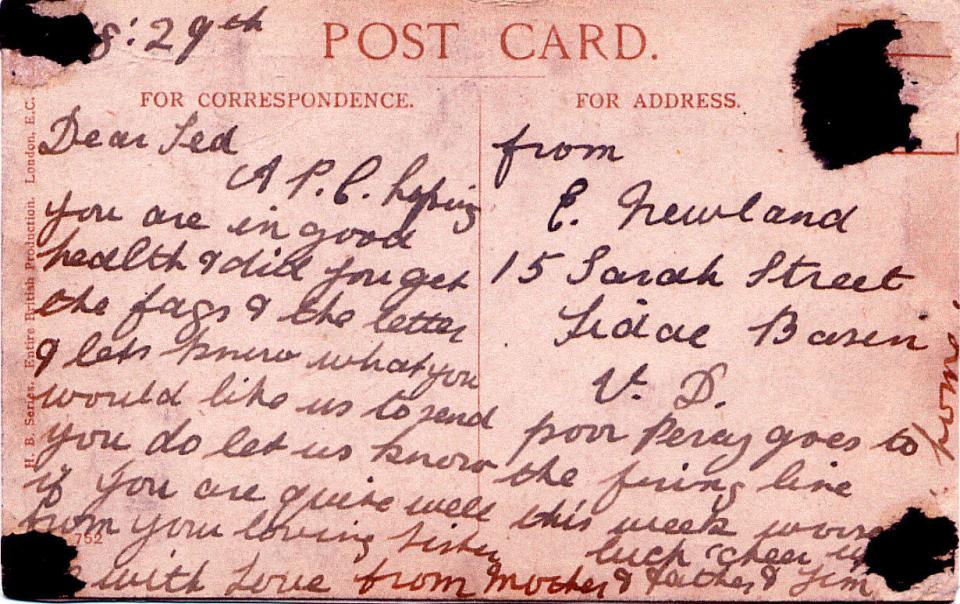 8: 29th
POST CARD.
FOR CORRESPONDENCE.
FOR ADDRESS.
H. B. Series. Entire British Production. London, E.C.
Dear Ted
A P.C. hoping
you are in good
health & did you get
the fags & the letter
& lets know what you
would like us to send
you do let us know
if you are quite well
from your loving sister
with love from Mother & father & Jim
752
from
E. Newland
15 Sarah Street
Tidal Basin
V. D.
poor Percy goes to
the firing line
this week worse
luck cheer up
home